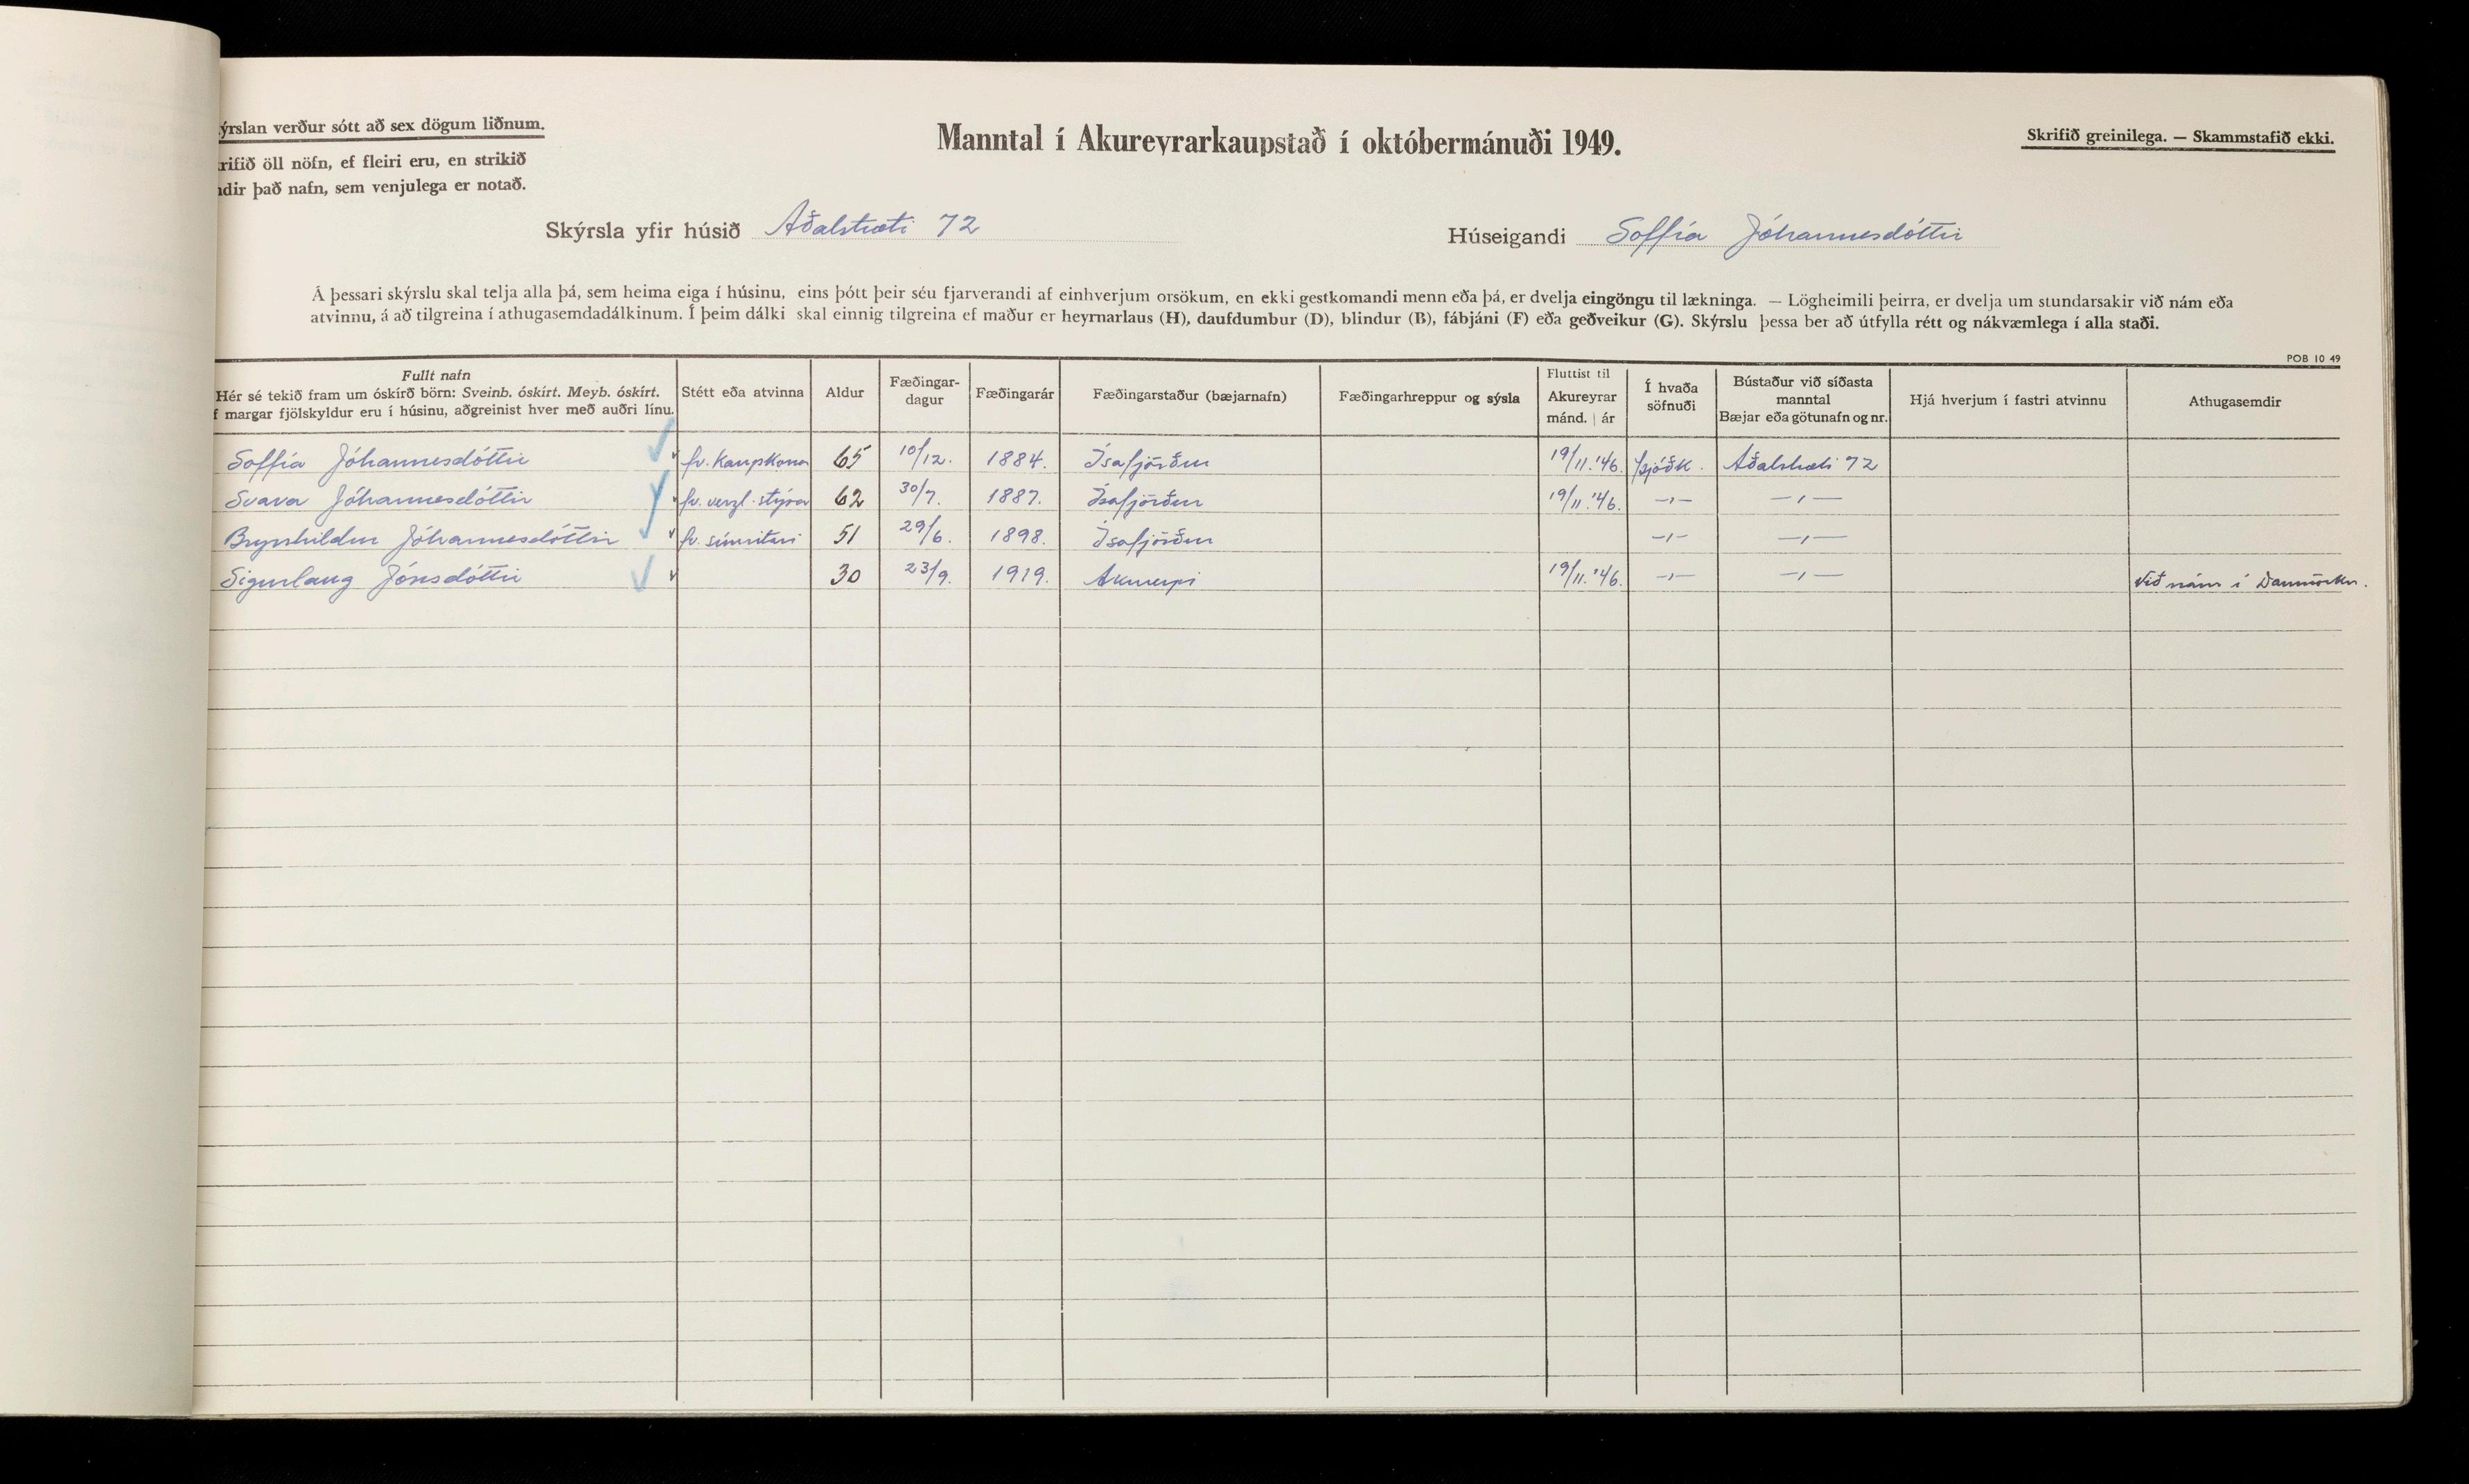 ýrslan verður sótt að sex dögum liðnum.
rifið öll nöfn, ef fleiri eru, en strikið
dir það nafn, sem venjulega er notað.
Manntal í Akureyrarkaupstað í októbermánuði 1949.
Skrifið greinilega. — Skammstafið ekki.
Skýrsla yfir húsið Aðalstræti 72
Húseigandi Soffía Jóhannesdóttir
Á þessari skýrslu skal telja alla þá, sem heima eiga í húsinu, eins þótt þeir séu fjarverandi af einhverjum orsökum, en ekki gestkomandi menn eða þá, er dvelja eingöngu til lækninga. — Lögheimili þeirra, er dvelja um stundarsakir við nám eða
atvinnu, á að tilgreina í athugasemdadálkinum. Í þeim dálki skal einnig tilgreina ef maður er heyrnarlaus (H), daufdumbur (D), blindur (B), fábjáni (F) eða geðveikur (G). Skýrslu þessa ber að útfylla rétt og nákvæmlega í alla staði.
POB 10 49
Fullt nafn
Hér sé tekið fram um óskírð börn: Sveinb. óskírt. Meyb. óskírt.
f margar fjölskyldur eru í húsinu, aðgreinist hver með auðri línu.
Stétt eða atvinna
Aldur
Fæðingar-
dagur
Fæðingarár
Fæðingarstaður (bæjarnafn)
Fæðingarhreppur og sýsla
Fluttist til
Akureyrar
mánd. | ár
Í hvaða
söfnuði
Bústaður við síðasta
manntal
Bæjar eða götunafn og nr.
Hjá hverjum í fastri atvinnu
Athugasemdir
Soffía Jóhannesdóttir fv. kaupkona 65 10/12. 1884. Ísafjörður 19/11.'46. Þjóðk. Aðalstræti 72
Svava Jóhannesdóttir fv. verzl.stýra 62 30/7. 1887. Ísafjörður 19/11.'46. —"— —"—
Brynhildur Jóhannesdóttir fv. símritari 51 29/6. 1898. Ísafjörður —"— —"—
Sigurlaug Jónsdóttir 30 23/9. 1919. Akureyri 19/11.'46. —"— —"— Við nám í Danmörku.